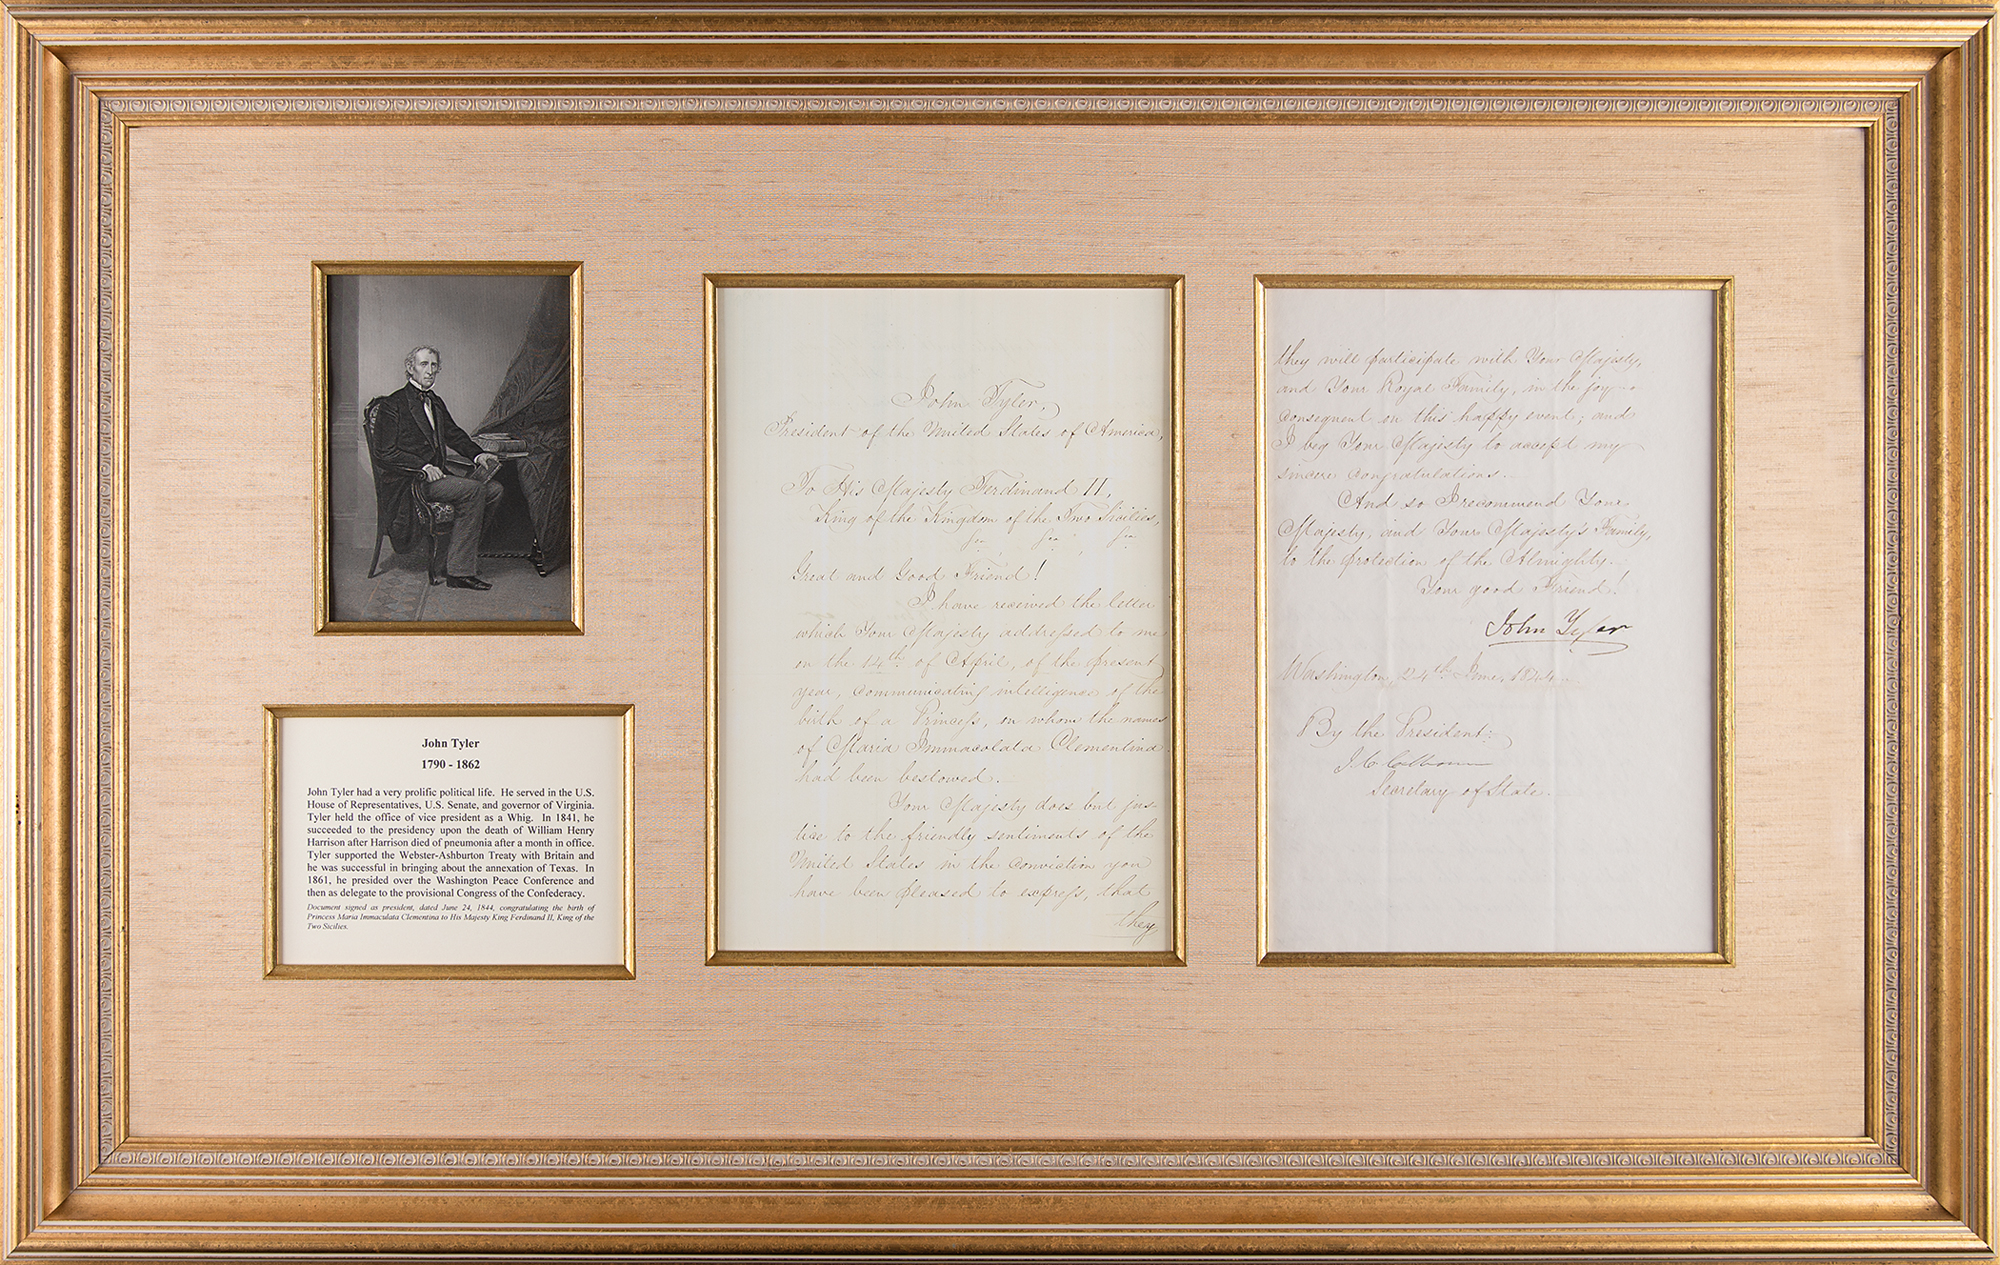 John Tyler
1790 - 1862
John Tyler had a very prolific political life. He served in the U.S.
House of Representatives, U.S. Senate, and governor of Virginia.
Tyler held the office of vice president as a Whig. In 1841, he
succeeded to the presidency upon the death of William Henry
Harrison after Harrison died of pneumonia after a month in office.
Tyler supported the Webster-Ashburton Treaty with Britain and
he was successful in bringing about the annexation of Texas. In
1861, he presided over the Washington Peace Conference and
then as delegate to the provisional Congress of the Confederacy.
Document signed as president, dated June 24, 1844, congratulating the birth of
Princess Maria Immaculata Clementina to His Majesty King Ferdinand II, King of the
Two Sicilies.
John Tyler,
President of the United States of America,
To His Majesty Ferdinand II,
King of the Kingdom of the Two Sicilies,
&c. &c. &c.
Great and Good Friend!
I have received the letter
which Your Majesty addressed to me
on the 14th of April, of the present
year, communicating intelligence of the
birth of a Princess, on whom the names
of Maria Immacolata Clementina
had been bestowed.
Your Majesty does but jus-
tice to the friendly sentiments of the
United States in the conviction you
have been pleased to express, that
they
they will participate with Your Majesty,
and Your Royal Family, in the joy
consequent on this happy event; and
I beg Your Majesty to accept my
sincere congratulations.
And so I recommend Your
Majesty, and Your Majesty's Family,
to the protection of the Almighty.
Your good Friend!
John Tyler
Washington, 24th June, 1844.
By the President:
J. C. Calhoun
Secretary of State.